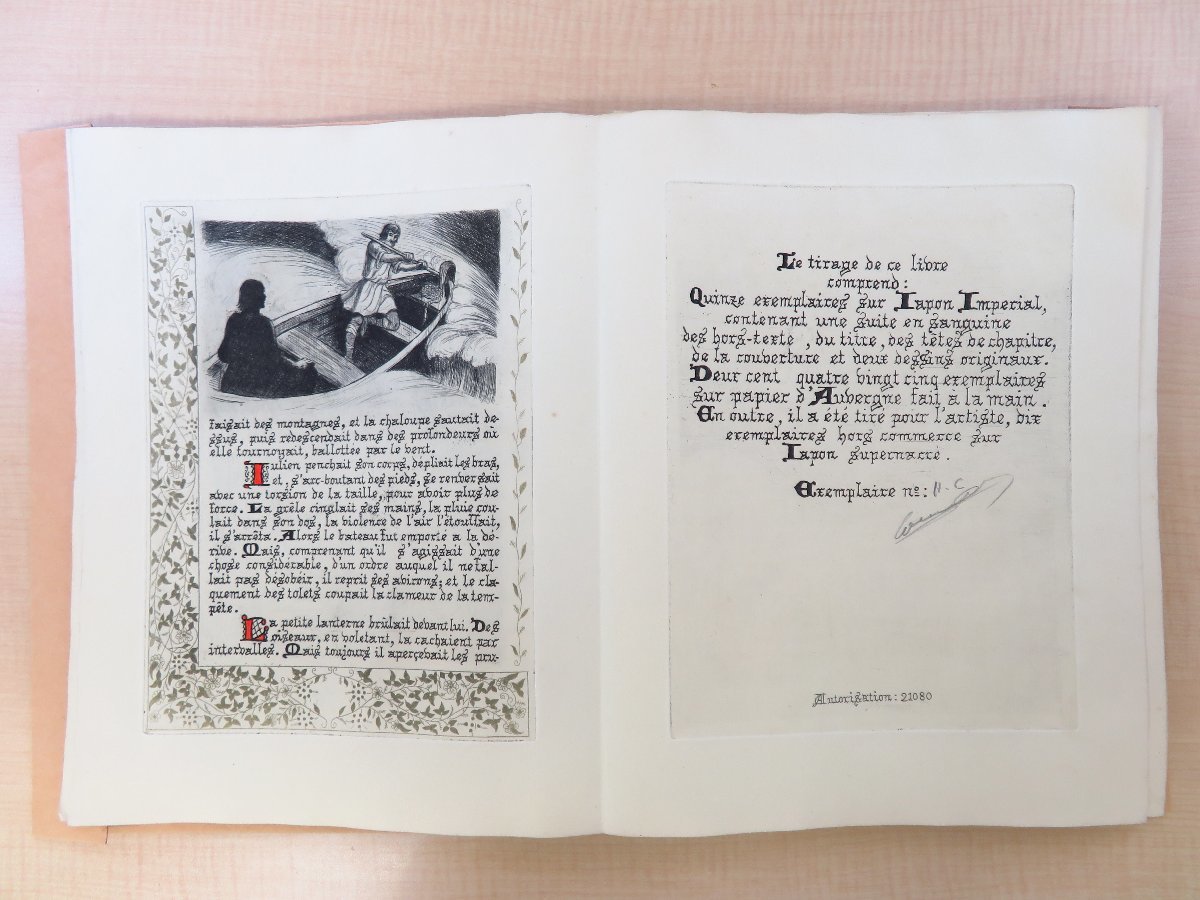 faisait des montagnes, et la chaloupe sautait de-
ssus, puis redescendait dans des profondeurs où
elle tournoyait, ballottée par le vent.
Julien penchait son corps, dépliait les bras,
et, s'arc-boutant des pieds, se renversait
avec une torsion de la taille, pour avoir plus de
force. La grêle cinglait ses mains, la pluie cou-
lait dans son dos, la violence de l'air l'étouffait,
il s'arrêta. Alors le bateau fut emporté a la dé-
rive. Mais, comprenant qu'il s'agissait d'une
chose considérable, d'un ordre auquel il ne fal-
lait pas désobéir, il reprit ses avirons; et le cla-
quement des tolets coupait la clameur de la tem-
pête.
La petite lanterne brûlait devant lui. Des
oiseaux, en voletant, la cachaient par
intervalles. Mais toujours il apercevait les pru-
Le tirage de ce livre
comprend:
Quinze exemplaires sur Japon Imperial,
contenant une suite en sanguine
des hors-texte, du titre, des têtes de chapitre,
de la couverture et deux dessins originaux.
Deux cent quatre vingt cinq exemplaires
sur papier d'Auvergne fait a la main.
En outre, il a été tiré pour l'artiste, dix
exemplaires hors commerce sur
Japon supernacre.
Exemplaire nº: H.C
Autorisation: 21080